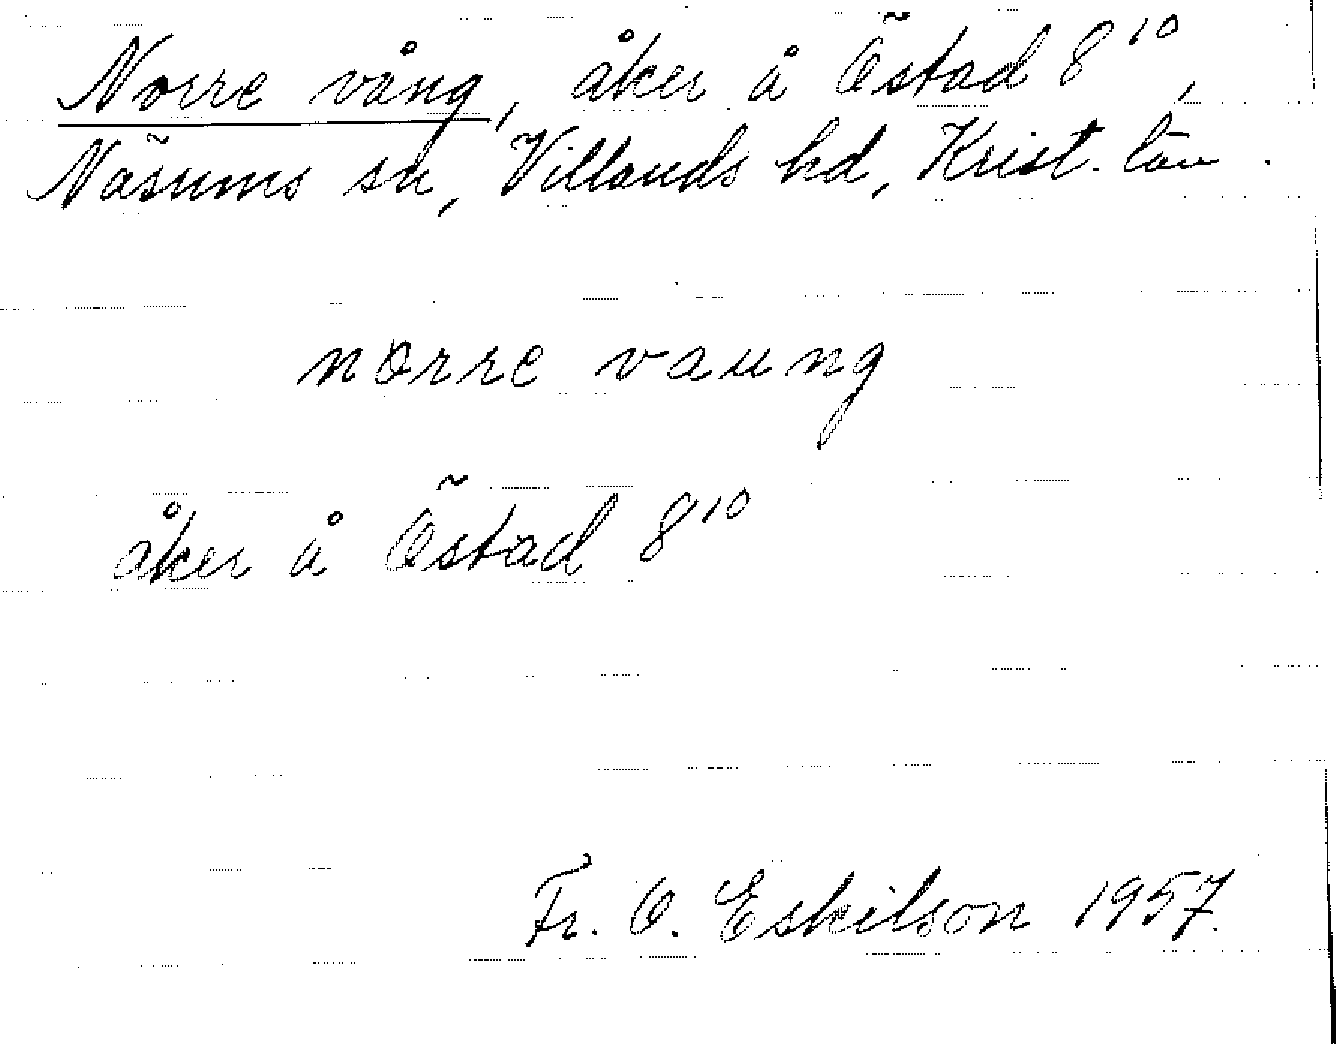 Norre vång, åker å Östad 8¹⁰,
Näsums sn, Villands hd, Krist. län.
norre vaung
åker å Östad 8¹⁰
Fr. O. Eskilson 1957.